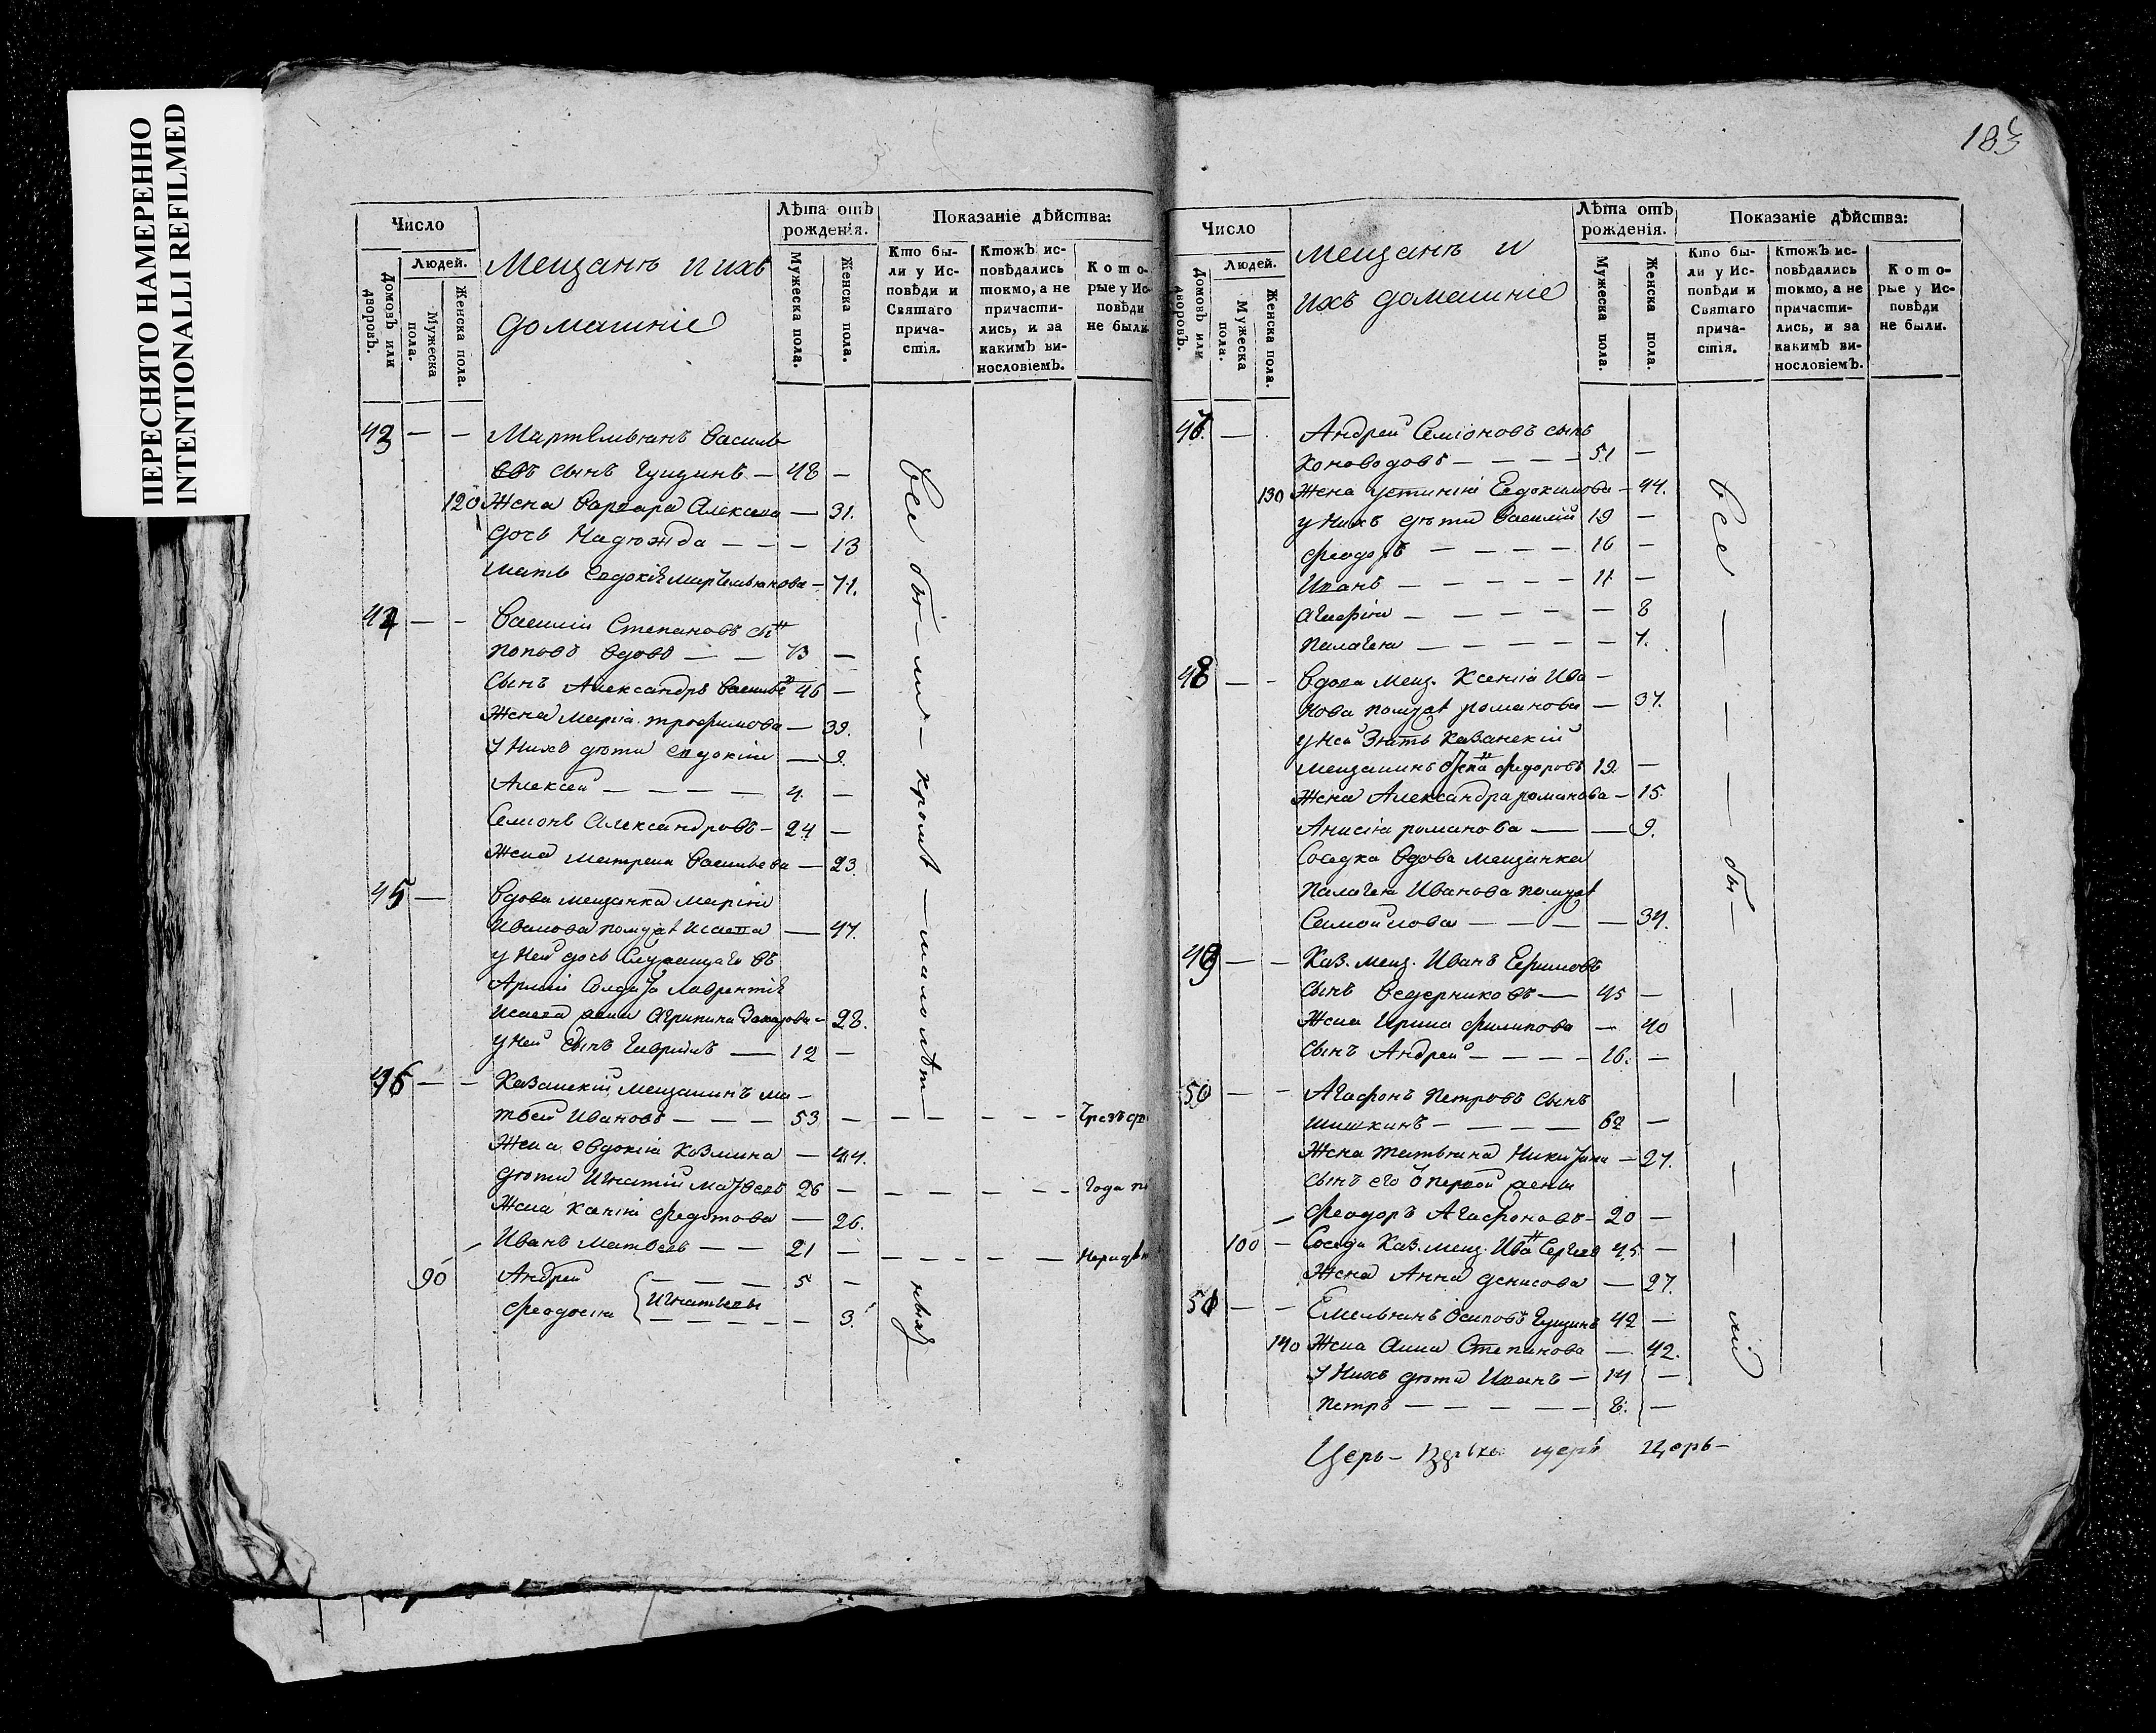 ПЕРЕСНЯТО НАМЕРЕННО
INTENTIONALLI REFILMED
Число
Людей.
Домовъ или дворовъ.
Мужеска пола.
Женска пола.
Мещанъ и ихъ
домашніе
Лѣта отъ рожденія.
Мужеска пола.
Женска пола.
Показаніе дѣйства:
Кто были у Исповѣди и Святаго причастія.
Ктожъ исповѣдались токмо, а не причастились, и за какимъ винословіемъ.
Которые у Исповѣди не были
43 — — Мартемьянъ Василь
евъ сынъ Гущинъ — 48 —
120 Жена Варвара Алексева — 31.
дочь Надежда — — — 13
мать Евдокія Мартемьянова — 71.
44 — — Василій Степановъ сынъ
Поповъ вдовъ — — 73 —
сынъ Александръ Васильевъ 46 —
Жена Марія Трофимова — 39.
у нихъ дѣти Евдокія — 9.
Алексей — — — — 4. —
Семіонъ Александровъ — 24 —
Жена Матрена Васильева — 23.
45 — Вдова мещанка Марія
Иванова по мужѣ Исаева — 47.
у ней дочь служащаго въ
Арміи солдата Лаврентія
Исаева жена Агрипина Захарова — 28.
у ней сынъ Гавріилъ — 12 —
46 — — Казанскій мещанинъ Ма-
твей Ивановъ — — — 53 — — — — — — Чрезъ
Жена Евдокія Козмина — 44.
дѣти Игнатій Матвеевъ 26 — — — — — — Года
Жена Ксенія Федотова — 26.
Иванъ Матвеевъ — — 21 — — — — — —
90 Андрей — — — 5 —
Игнатьевы
Феодосія — — — — 3.
все бы — ли — кромѣ — малолѣт — ныхъ
183
Число
Людей.
Домовъ или дворовъ.
Мужеска пола.
Женска пола.
Мещанъ и
ихъ домашніе
Лѣта отъ рожденія.
Мужеска пола.
Женска пола.
Показаніе дѣйства:
Кто были у Исповѣди и Святаго причастія.
Ктожъ исповѣдались токмо, а не причастились, и за какимъ винословіемъ.
Которые у Исповѣди не были.
47. — Андрей Семіоновъ сынъ
Коноводовъ — — — — 51 —
130 Жена Устинія Евдокимова — 44.
у нихъ дѣти Василій 19 —
Феодоръ — — — — 16 —
Иванъ — — — — — 11 —
Агафія — — — — — 8
Палагея — — — — — 7.
48 — — Вдова мещ. Ксенія Ива —
нова по мужѣ Романова — 37.
у ней зять Казанскій
мещанинъ Степанъ Федоровъ 19 —
Жена Александра Романова — 15.
Анисія Романова — — 9.
Соседка вдова мещанка
Палагея Иванова по мужѣ
Самойлова — — — — 34.
49 — — Каз. мещ. Иванъ Ефимовъ
сынъ Ведерниковъ — 45 —
Жена Ирина Филипова — 40
сынъ Андрей — — — — 16. —
50 — — Агафонъ Петровъ сынъ
Шишкинъ — — — — 62 —
Жена Татьяна Никитина — 27.
сынъ его отъ первой жены
Феодоръ Агафоновъ — 20 —
100 — Соседъ Каз. мещ. Иванъ Сергеев 45 —
Жена Анна Денисова — 27.
51 — — Емельянъ Осиповъ Гущинъ 42 —
140 Жена Анна Степанова — 42.
у нихъ дѣти Иванъ — 14 —
Петръ — — — — — 8. —
все — — — — бы — — — — — ли
Церь — церь Церь —